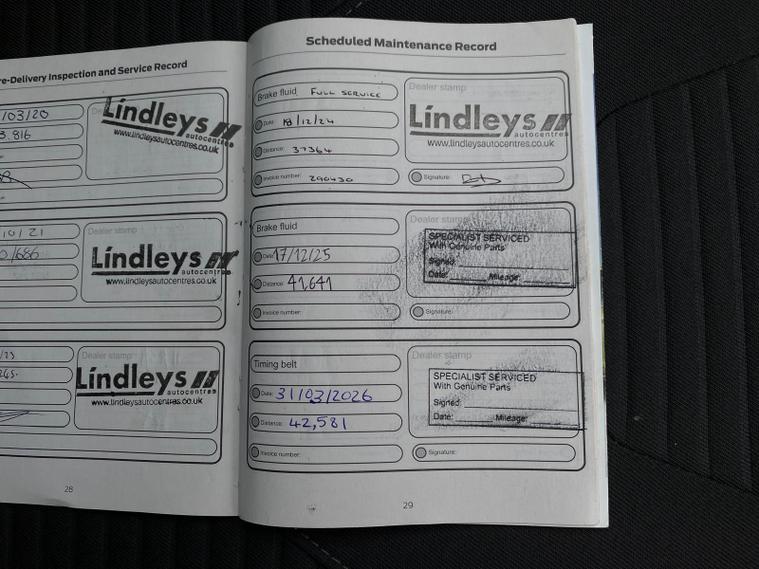 re-Delivery Inspection and Service Record
/03/20
3.816
Dealer stamp
Lindleys
autocentres
www.lindleysautocentres.co.uk
10/21
0/686
Dealer stamp
Lindleys
autocentres
www.lindleysautocentres.co.uk
/23
Dealer stamp
Lindleys
autocentres
www.lindleysautocentres.co.uk
28
Scheduled Maintenance Record
Brake fluid FULL SERVICE
Date: 18/12/24
Distance: 37364
Invoice number: 290430
Dealer stamp
Lindleys
autocentres
www.lindleysautocentres.co.uk
Signature:
Brake fluid
Date: 17/12/25
Distance: 41,641
Invoice number:
Dealer stamp
SPECIALIST SERVICED
With Genuine Parts
Signed:
Date: Mileage:
Signature:
Timing belt
Date: 31/03/2026
Distance: 42,581
Invoice number:
Dealer stamp
SPECIALIST SERVICED
With Genuine Parts
Signed:
Date: Mileage:
Signature:
29